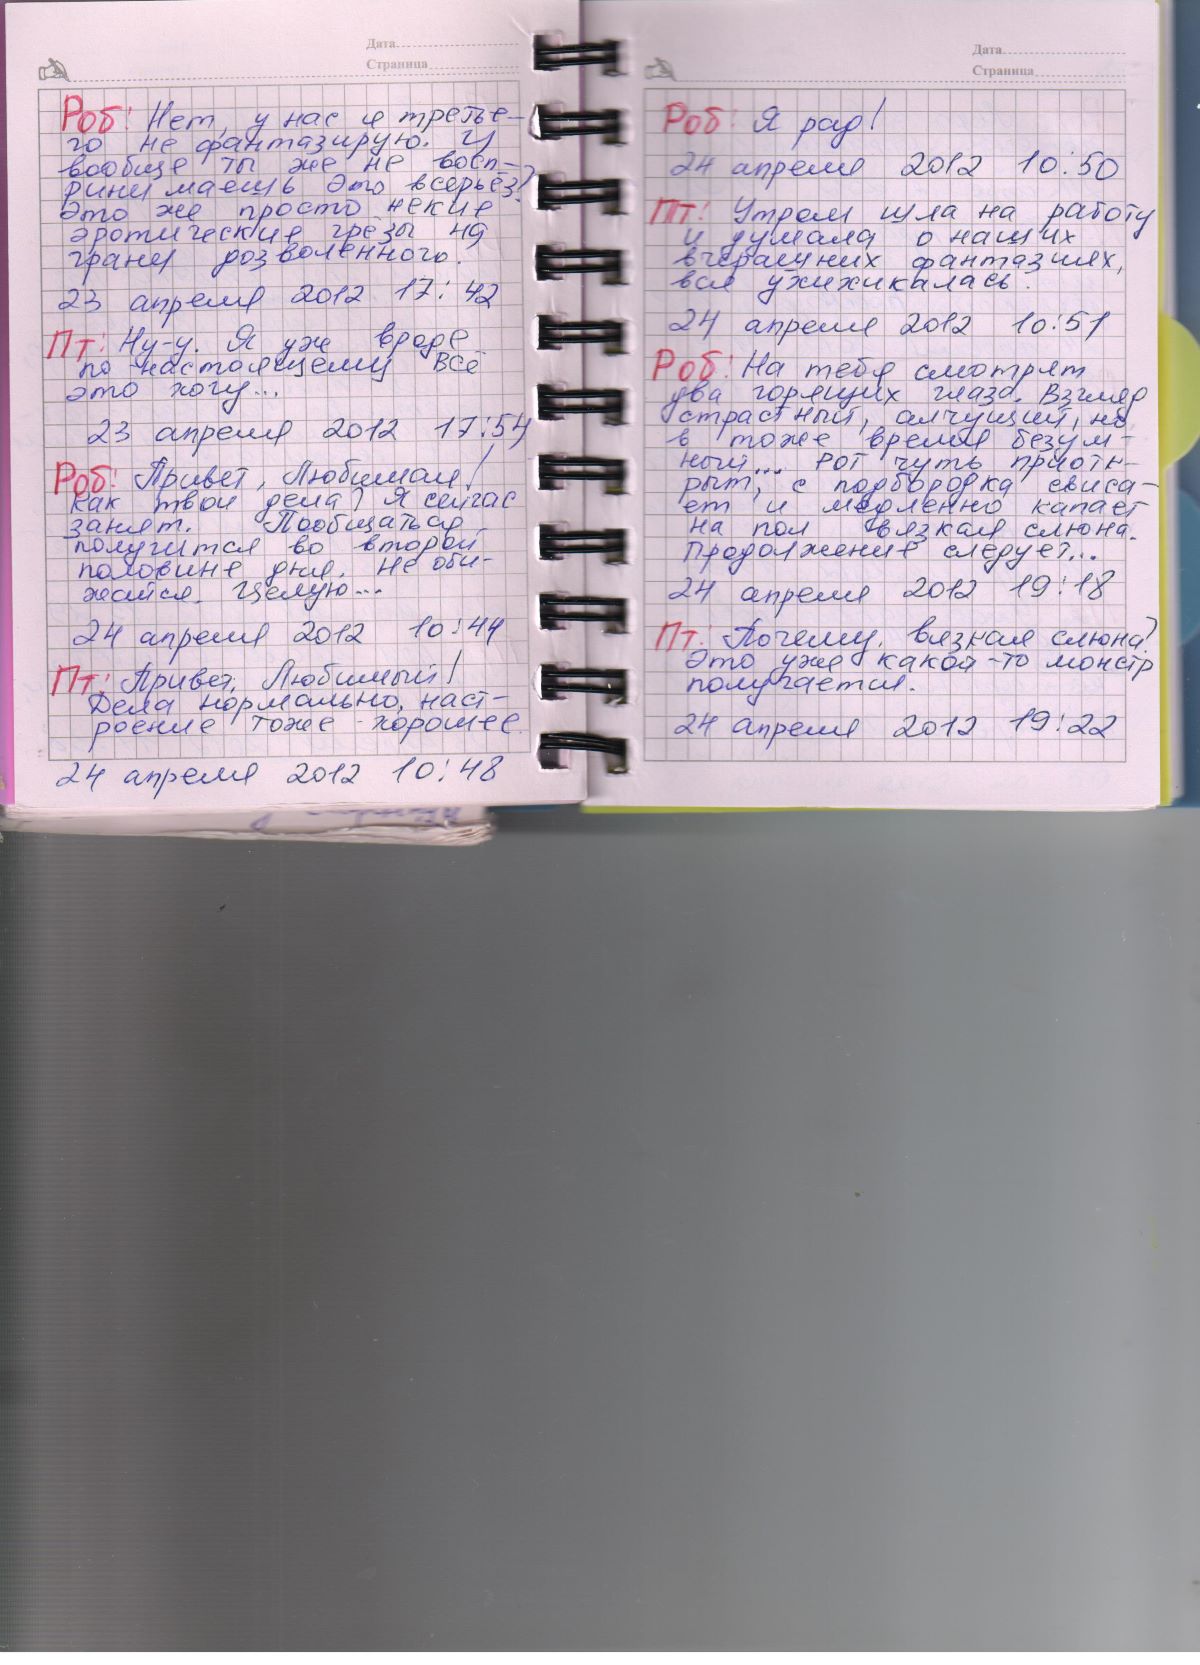 Дата
Страница
Роб: Нет, у нас я третье-
го не фантазирую. И
вообще ты же не восп-
ринимаешь это всерьёз?
Это же просто некие
эротические грёзы на
грани дозволенного.
23 апреля 2012 17:42
Пт: Ну-у. Я уже вроде
по настоящему всё
это хочу...
23 апреля 2012 17:54
Роб: Привет, Любимая!
Как твои дела? Я сейчас
занят. Пообщаться
получится во второй
половине дня. Не оби-
жайся. Целую...
24 апреля 2012 10:44
Пт: Привет, Любимый!
Дела нормально, наст-
роение тоже хорошее.
24 апреля 2012 10:48
Дата
Страница
Роб: Я рад!
24 апреля 2012 10:50
Пт: Утром шла на работу
и думала о наших
вчерашних фантазиях,
вся ухихикалась.
24 апреля 2012 10:51
Роб: На тебя смотрят
два горящих глаза. Взгляд
страстный, алчущий, но
в тоже время безум-
ный... Рот чуть приотк-
рыт, с подбородка свиса-
ет и медленно капает
на пол вязкая слюна.
Продолжение следует...
24 апреля 2012 19:18
Пт: Почему, вязкая слюна?
Это уже какой-то монстр
получается.
24 апреля 2012 19:22